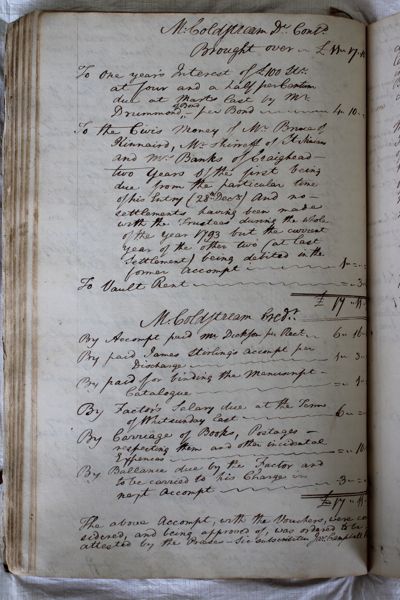 Mr Coldstream Dr. Contd.
Brought over - £ 11 - 17 -
To One year's Interest of £100 Str.
at Four and a half per Centum
due at Martss last by Mr.
Drummond, - per Bond 4 - 10 -
To the Civis Money of Mr. Bruce of
Kinnaird, Mr. Shirreff of St. Ninians
and Mr. Banks of Craighead -
two years of the first being
due from the particular time
of his Entry (28th Decr.) and no
settlements having been made
with the Trustees during the whole
of the year 1793 but the current
year of the other two (at last
Settlement) being debited in the
former Accompt 1 -
To Vault Rent - 3
£ 17 - 11
Mr Coldstream Credr.
By Accompt paid Mr Dickson per Rect. 6 - 16
By paid James Sterling's accompt per
Discharge 1 - 3
By paid for binding the Manuscript
Catalogue - 1
By Factor's Salary due at the Term
of Whitsunday last 6
By Carriage of Books, Postages -
respecting them and other incidental
Expences - 10
By Ballance due by the Factor and
to be carried to his Charge in
next Accompt 3
£ 17 - 11
The above Accompt, with the Vouchers, were con
sidered, and being approved of, was ordered to be
attested by the Preses - Sic subscribitur Jas. Campbell